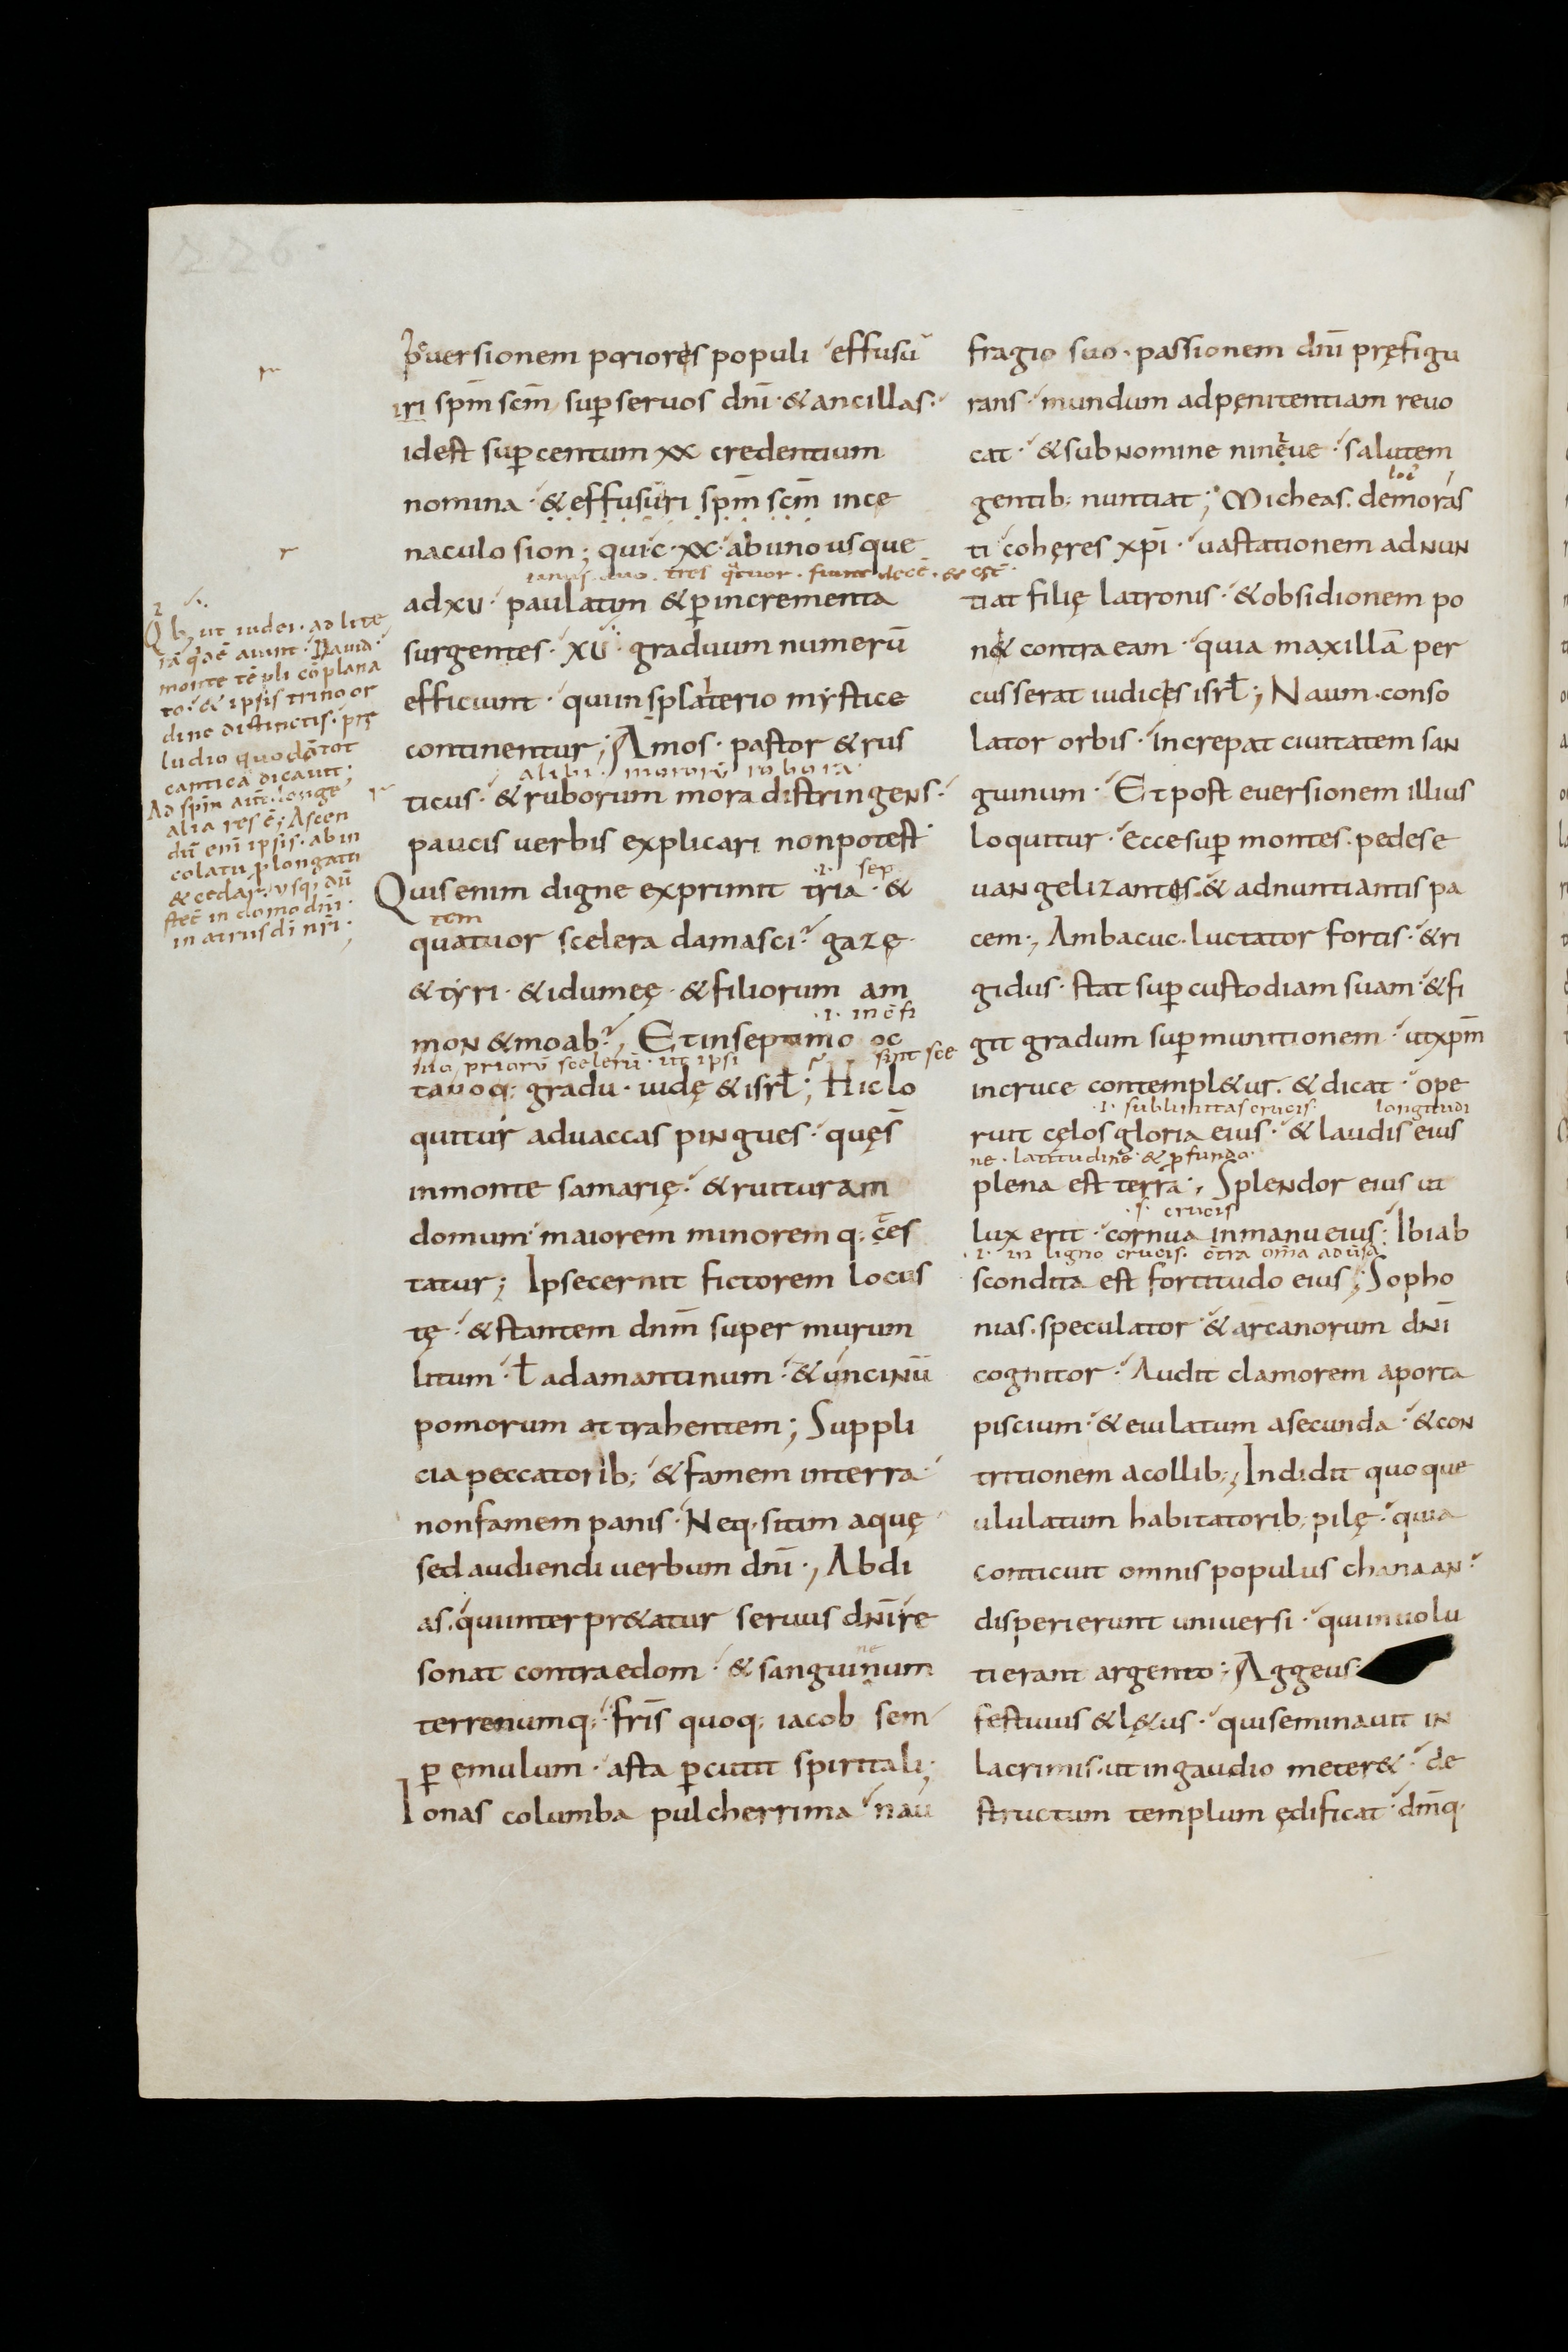 226.
p̲ uersionem prioris populi effusū
iri sp̄m sc̄m sup seruos dn̄i · & ancillas ·
id est sup centum xx credentium
nomina · & effusuri sp̄m sc̄m in ce
naculo sion ; qui · c · xx · ab uno usque
unus duo tres q̇tuor · fiunt decē · &
ad xu · paulatim & p incrementa
surgentes · xu · graduum numerū
efficiunt · qui in spalterio mystice
continentur ; Amos · pastor & rus
alibi · mororū robora
ticus · & ruborum mora distringens ·
paucis uerbis explicari non potest ·
.i. sep
Quis enim digne exprimit tria · &
tem
quatuor scelera damasci · gazę ·
& tyri · & idumeę · & filiorum am
.i. in c̄fi
mon & moab · ; Et in septimo oc
priorū scelerū · ut ipsi sunt sce
tauoq: gradu · iudę & isrł ; Hic lo
quitur ad uaccas pingues · quę s̄
in monte samarię · & ruituram
domum maiorem minoremq: tes
tatur ; Ipse cernit fictorem locus
tę · & stantem dn̄m super murum
litum · ł adamantinum · & uncinū
pomorum attrahentem ; Suppli
cia peccatorib; & famem in terra ·
non famem panis · Neq; sitim aquę
sed audiendi uerbum dn̄i · ; Abdi
as · qui interpr&atur seruus dn̄i re
sonat contra edom · & sanguinum
ne
terrenumq; · fr̄is quoq; iacob sem
p emulum · asta pcutit spiritali ·
Ionas columba pulcherrima nau
2
Qb; ut iudei · ad lite
rā aiunt · Dauid ·
monte tēpli cōplana
to · & ipsis trino or
dine distinctis · prę
ludio quodā tot
cantica dicauit ;
Ad sp̄m aūt longe
alia res ē ; Ascen
dū enī ipsis · ab in
colatu plongati
& cedar · usq; dū
stet̄ in domo dn̄i ·
in atriis dī nr̄i ·
fragio suo · passionem dn̄i pręfigu
rans · mundum ad pęnitentiam reuo
cat · & sub nomine nineue · salutem
gentib; nuntiat ; Micheas · de moras
ti cohęres xp̄i · uastationem adnun
tiat filię latronis · & obsidionem po
n& contra eam · quia maxillā per
cusserat iudicis isrł ; Naum · conso
lator orbis · increpat ciuitatem san
guinum · Et post euersionem illius
loquitur · Ecce sup montes · pedes e
uangelizantis · & adnuntiantis pa
cem · ; Ambacuc · luctator fortis · & ri
gidus · stat sup custodiam suam · & fi
git gradum sup munitionem · ut xp̄m
in cruce contempl&ur · & dicat · ope
.i. sublimitas crucis · longitudi
ruit cęlos gloria eius · & laudis eius
ne · latitudine · & pfundo ·
plena est terra · ; Splendor eius ut
.s. crucis
lux erit · cornua in manu eius · Ibi ab
.i. in ligno crucis · c̄tra om̄a aduersa
scondita est fortitudo eius ; Sopho
nias · speculator & arcanorum dn̄i
cognitor · Audit clamorem a porta
piscium · & eiulatum a secunda · & con
tritionem a collib; ; Indidit quoque
ululatum habitatorib; pilę · quia
conticuit omnis populus chanaan ·
disperierunt uniuersi · qui inuolu
ti erant argento ; Aggeus ·
festiuus & lę&us · qui seminauit in
lacrimis · ut in gaudio meter& · de
structum templum ędificat · dm̄q;